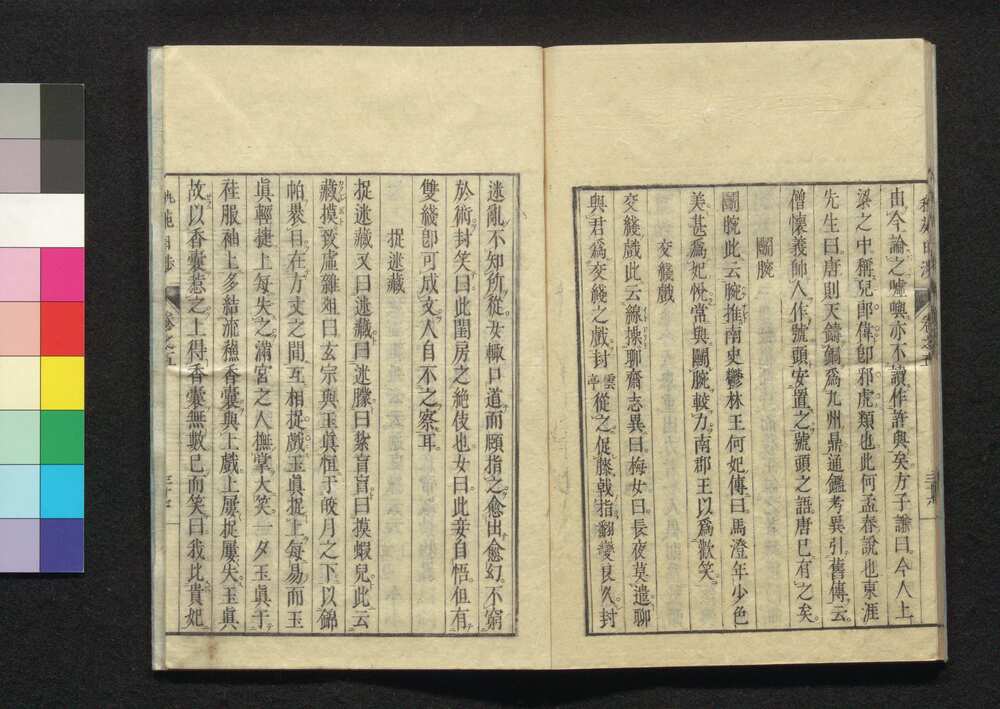 由今論之噓嚊亦不讀作許與矣方子謙曰今人上
梁之中稱兒郎偉卽邪虎類也此何孟春說也東涯
先生曰唐則天鑄銅爲九州鼎通鑑考異引舊傳云
僧懷義帥人作號頭安置之號頭之語唐已有之矣
鬭腕
鬭腕此云腕推南史鬱林王何妃傳曰馬澄年少色
美甚爲妃悅常與鬭腕較力南郡王以爲歡笑
交綫戲
交綫戲此云線操聊齋志異曰梅女曰長夜莫遣聊
與君爲交綫之戲封雲亭從之促膝戟指翻變良久封
迷亂不知所從女輙口道而頤指之愈出愈幻不窮
於術封笑曰此閨房之絶伎也女曰此妾自悟但有
雙綫卽可成文人自不之察耳
捉迷藏
捉迷藏又曰迷藏曰迷朦曰紮盲盲曰摸蝦兒此云
藏摸致虛雜俎曰玄宗與玉眞恒于皎月之下以錦
帕裹目在方丈之間互相捉戲玉眞捉上每易而玉
眞輕捷上每失之滿宮之人撫掌大笑一夕玉眞于
袿服袖上多結流蘇香囊與上戲上屢捉屢失玉眞
故以香囊惹之上得香囊無數已而笑曰我比貴妃
卷之五